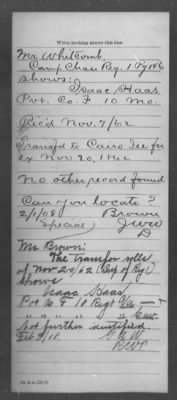 Write nothing above this line.
Mr Whitcomb,
Camp Chase Reg. 1
shows:
Isaac Haas
Pvt. Co. F 10 Mo.
Rec'd Nov. 7/62
Transf'd to Cairo Ill for
ex Nov 20, 1862
No other record found
Can you locate?
2/2/08 Brown
Special
D
Mr Brown:
The transfer rolls
of Nov 20/62 (Dep of Regt)
shows
Isaac Haas
Pvt Co F 10 Regt
" " " " " Cav
Not further identified
Feb 3, 08.